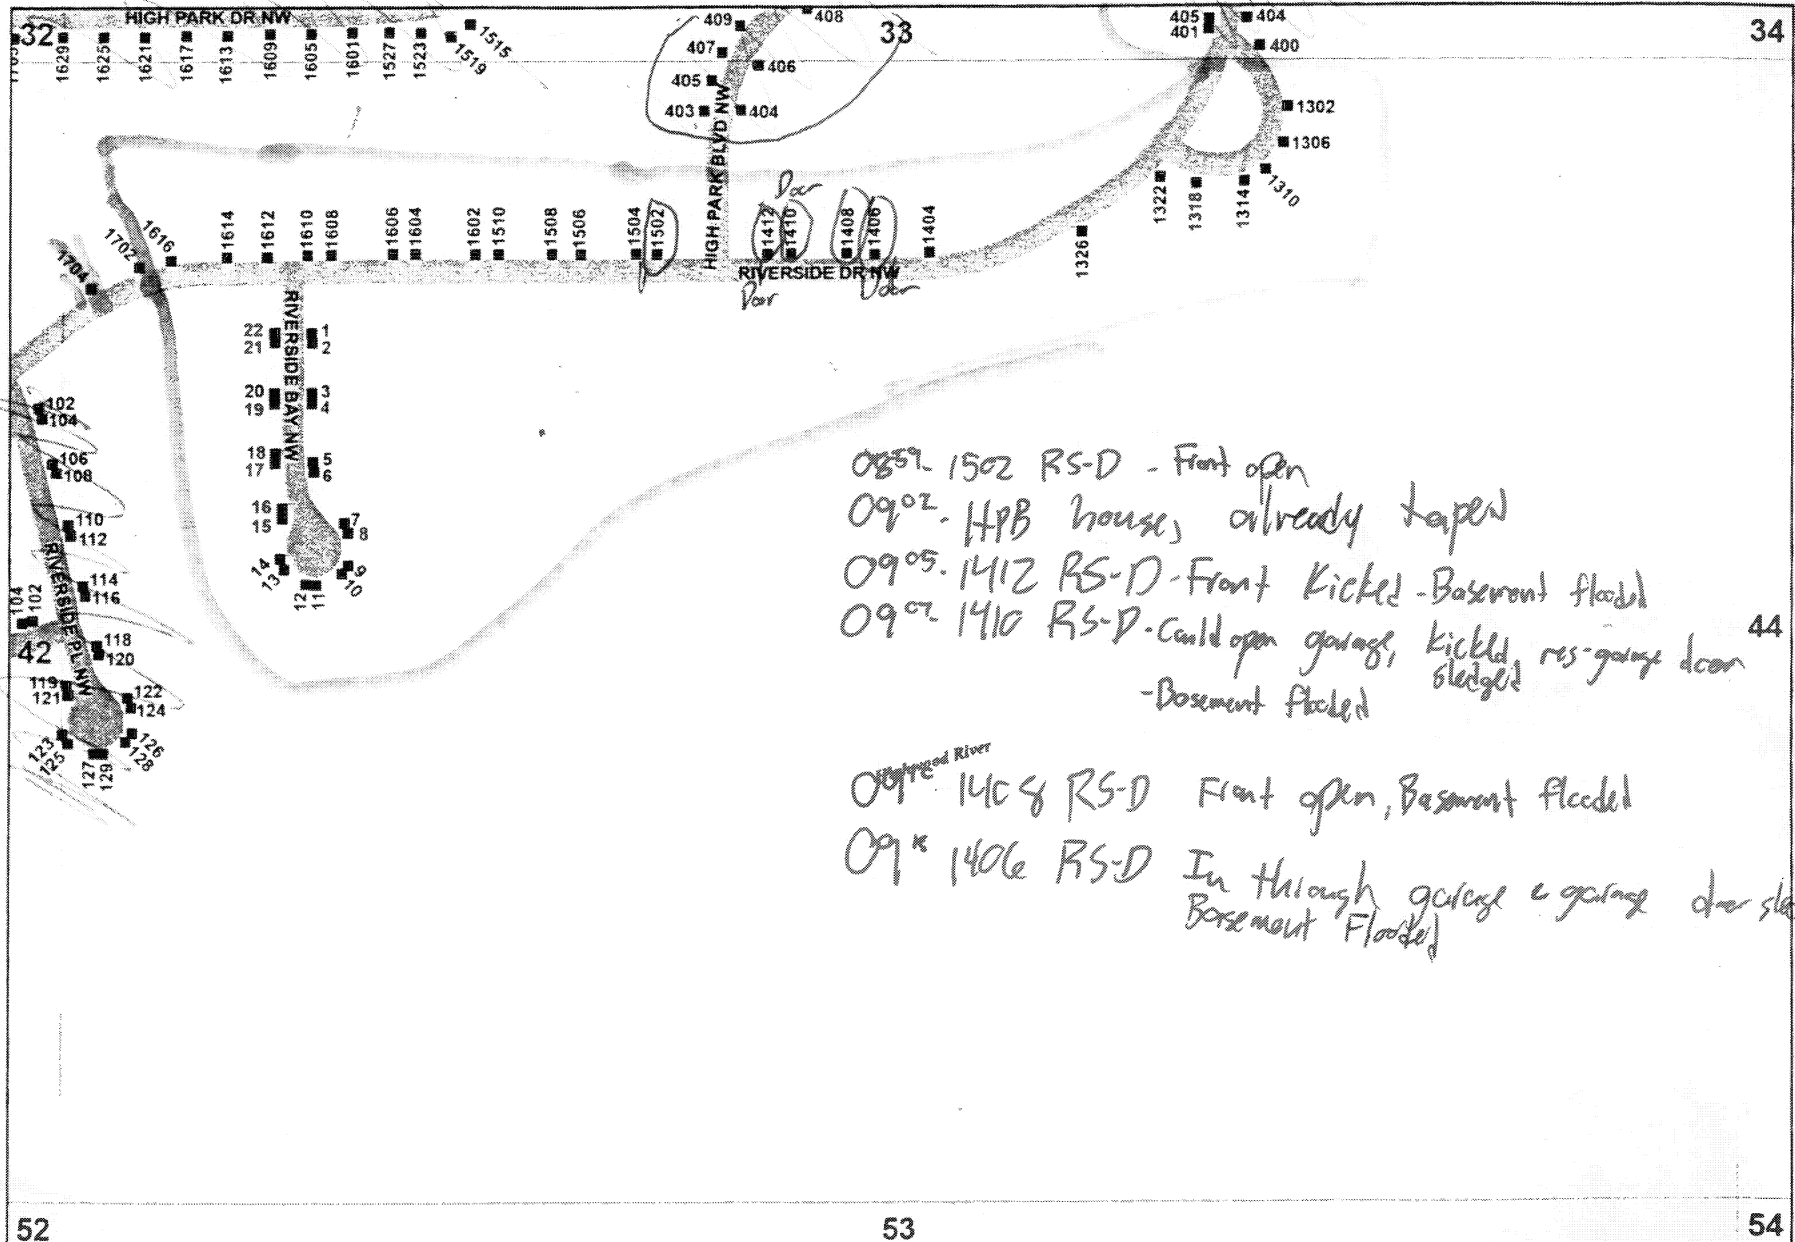 32
HIGH PARK DR NW
33
34
1629
1625
1621
1617
1613
1609
1605
1601
1527
1523
1519
1515
409
408
407
406
405
403
404
405
404
401
400
HIGH PARK BLVD NW
1302
1306
1310
1314
1318
1322
1326
Door
1704
1702
1616
1614
1612
1610
1608
1606
1604
1602
1510
1508
1506
1504
1502
1412
1410
1408
1406
1404
RIVERSIDE DR NW
Door
Door
RIVERSIDE BAY NW
22
21
1
2
20
19
3
4
18
17
5
6
16
15
7
8
14
13
12
11
10
9
102
104
106
108
110
112
114
116
118
120
104
102
42
RIVERSIDE PL NW
119
121
122
124
123
125
127
129
126
128
44
0859- 1502 RS-D - Front open
0902- HPB house, already taped
0905- 1412 RS-D - Front Kicked - Basement flooded
0907- 1410 RS-D - Could open garage, kicked, res-garage door
sledged
- Basement flooded
River
1408 RS-D Front open, Basement flooded
1406 RS-D In through garage garage door
Basement Flooded
52
53
54